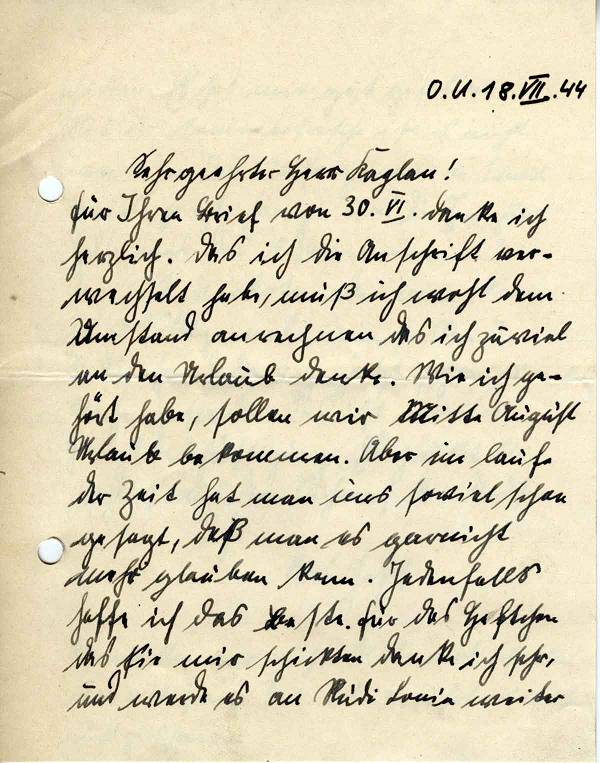 O.U. 18.VII.44
Sehr geehrter Herr Kaplan!
für Ihren Brief von 30. VI. danke ich
herzlich. Das ich die Anschrift ver-
wechselt habe, muß ich wohl dem
Umstand anrechnen das ich zuviel
an den Urlaub denke. Wie ich ge-
hört habe, sollen wir Mitte August
Urlaub bekommen. Aber im laufe
der Zeit hat man uns soviel schon
gesagt, daß man es garnicht
mehr glauben kann. Jedenfalls
hoffe ich das beste. für das Heftchen
das Sie mir schickten danke ich sehr,
und werde es an Rudi weiter